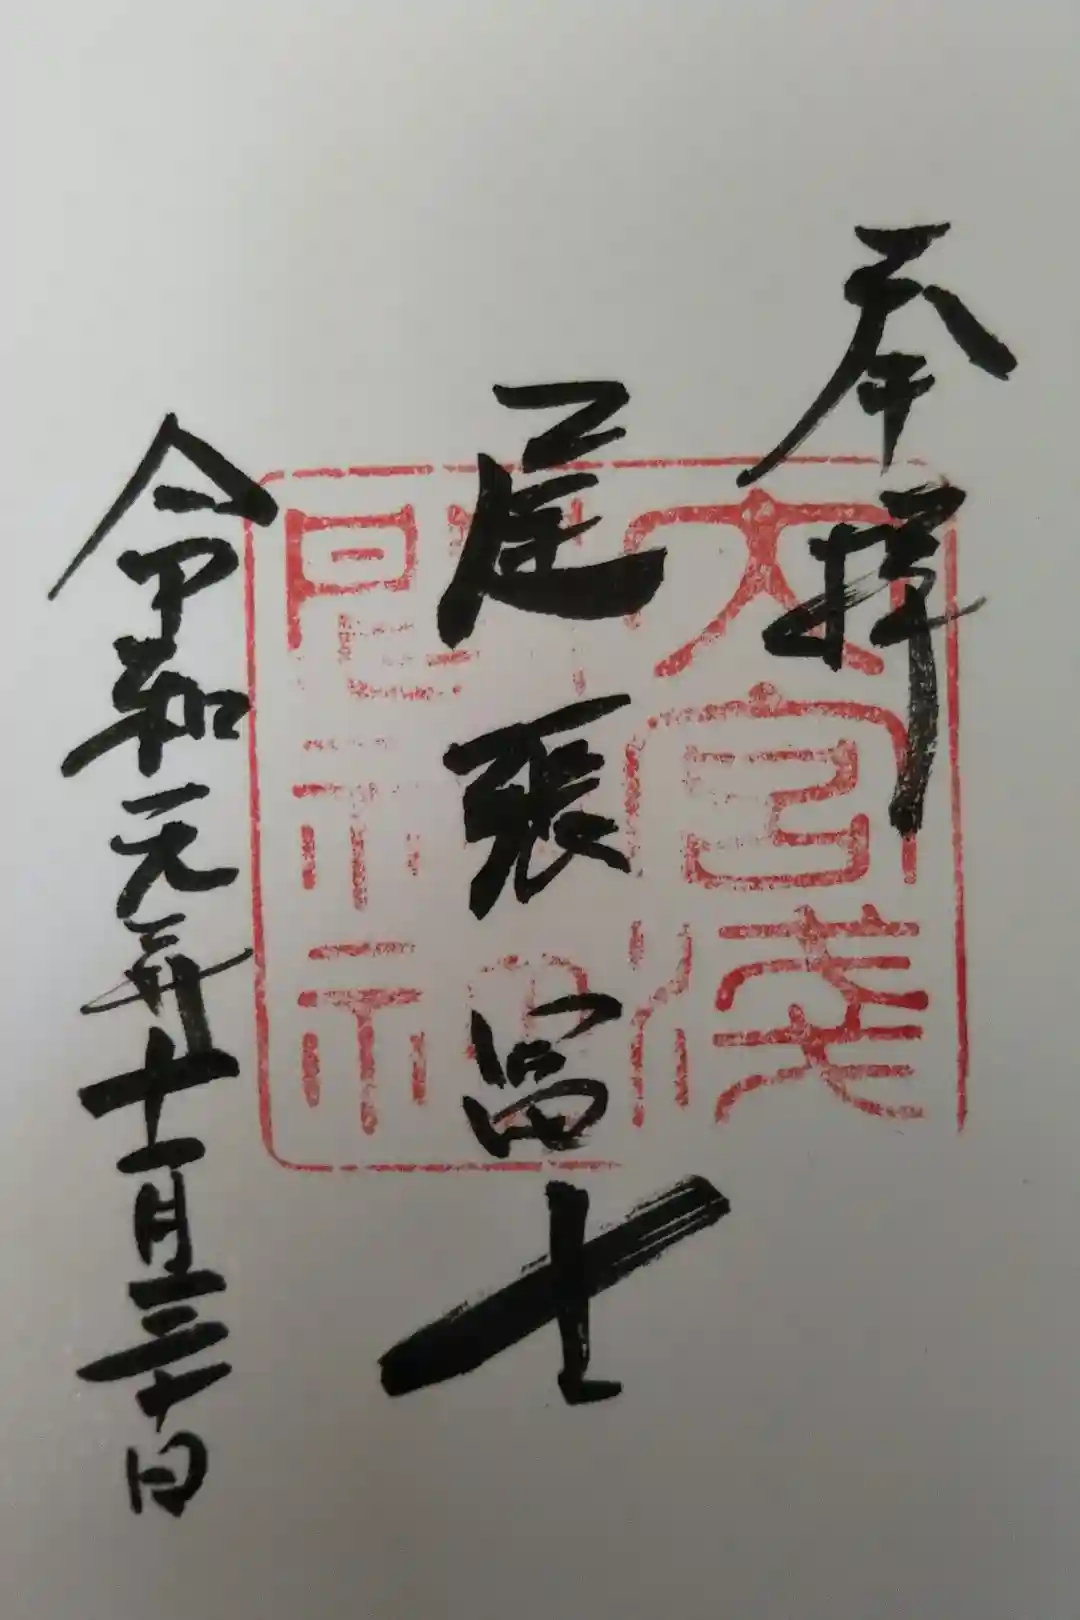 奉拝
大宮浅間神社
尾張冨士
令和元年十一月三十日